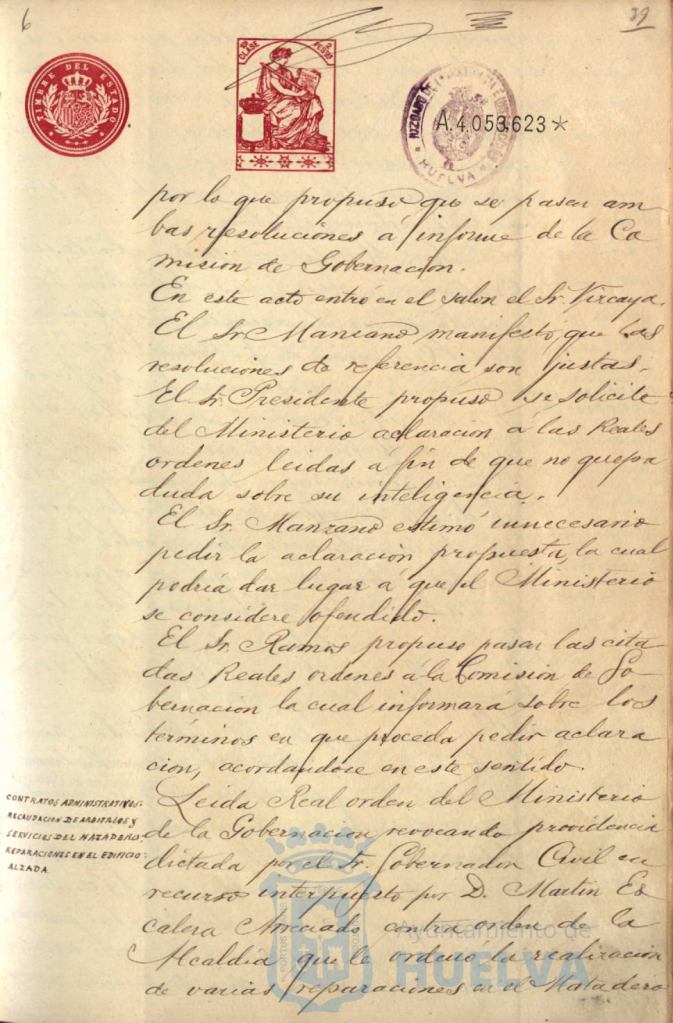 6
39
TIMBRE DEL ESTADO
10ª CLASE
2 PESETAS
JUZGADO DE
HUELVA
A.4.053.623*
por lo que propuso que se pasen am
bas resoluciones á informe de la Co
mision de Gobernacion.
En este acto entró en el salon el Sr. Vizcaya.
El Sr. Manzano manifestó, que las
resoluciones de referencia son justas.
El Sr. Presidente propuso se solicite
del Ministerio aclaracion á las Reales
ordenes leidas á fin de que no quepa
duda sobre su inteligencia.
El Sr. Manzano estimó innecesario
pedir la aclaración propuesta, la cual
podría dar lugar á que el Ministerio
se considere ofendido.
El Sr. Ramos propuso pasar las cita
das Reales ordenes á la Comision de Go
bernacion la cual informará sobre los
términos en que proceda pedir aclara
cion, acordandose en este sentido.
CONTRATOS ADMINISTRATIVOS:
RECAUDACION DE ARBITRIOS Y
SERVICIOS DEL MATADERO.
REPARACIONES EN EL EDIFICIO:
ALZADA
Leida Real orden del Ministerio
de la Gobernacion revocando providencia
dictada por el Sr. Gobernador Civil en
recurso interpuesto por D. Martin Es
calera Arreciado contra orden de la
Alcaldía que le ordenó la realizacion
de varias reparaciones en el Matadero
Ayuntamiento de
HUELVA